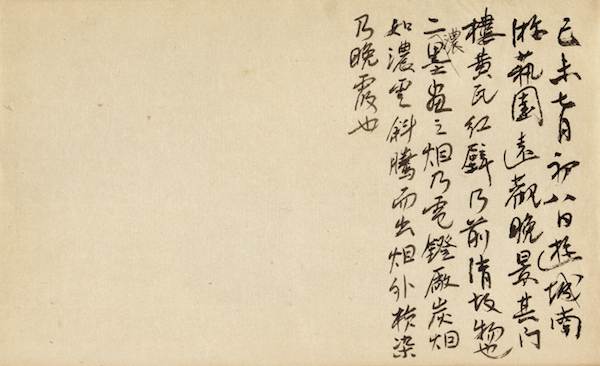 己未七月初八日遊城南
游藝園遠觀晚景其门
樓黄瓦紅壁乃前清故物也
二濃墨畫之烟乃電鐙廠炭烟
如濃雲斜騰而出烟外橫染
乃晚霞也